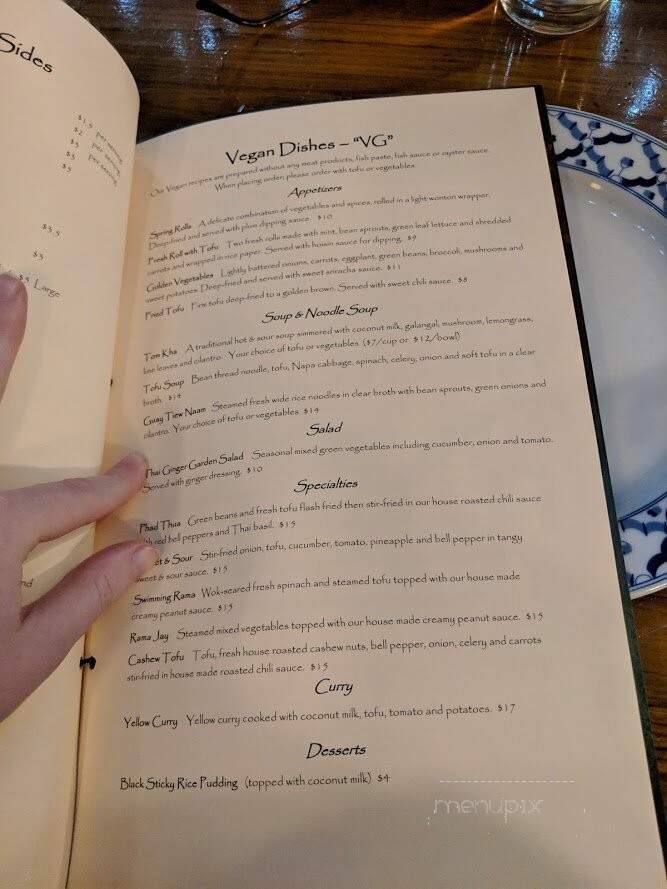 Sides
$1.5 per serving
$2 per serving
$3 per serving
$3
$5
$3.5
$3
$4 Large
Vegan Dishes – "VG"
Our Vegan recipes are prepared without any meat products, fish paste, fish sauce or oyster sauce.
When placing order, please order with tofu or vegetables.
Appetizers
Spring Rolls A delicate combination of vegetables and spices, rolled in a light wonton wrapper.
Deep-fried and served with plum dipping sauce. $10
Fresh Roll with Tofu Two fresh rolls made with mint, bean sprouts, green leaf lettuce and shredded
carrots and wrapped in rice paper. Served with hoisin sauce for dipping. $9
Golden Vegetables Lightly battered onions, carrots, eggplant, green beans, broccoli, mushrooms and
sweet potatoes. Deep-fried and served with sweet sriracha sauce. $11
Fried Tofu Firm tofu deep-fried to a golden brown. Served with sweet chili sauce. $8
Soup & Noodle Soup
Tom Kha A traditional hot & sour soup simmered with coconut milk, galangal, mushroom, lemongrass,
lime leaves and cilantro. Your choice of tofu or vegetables ($7/cup or $12/bowl)
Tofu Soup Bean thread noodle, tofu, Napa cabbage, spinach, celery, onion and soft tofu in a clear
broth. $14
Guay Tiew Naam Steamed fresh wide rice noodles in clear broth with bean sprouts, green onions and
cilantro. Your choice of tofu or vegetables $14
Salad
Thai Ginger Garden Salad Seasonal mixed green vegetables including cucumber, onion and tomato.
Served with ginger dressing. $10
Specialties
Phad Thua Green beans and fresh tofu flash fried then stir-fried in our house roasted chili sauce
with red bell peppers and Thai basil. $15
et & Sour Stir-fried onion, tofu, cucumber, tomato, pineapple and bell pepper in tangy
sweet & sour sauce. $15
Swimming Rama Wok-seared fresh spinach and steamed tofu topped with our house made
creamy peanut sauce. $15
Rama Jay Steamed mixed vegetables topped with our house made creamy peanut sauce. $15
Cashew Tofu Tofu, fresh house roasted cashew nuts, bell pepper, onion, celery and carrots
stir-fried in house made roasted chili sauce. $15
Curry
Yellow Curry Yellow curry cooked with coconut milk, tofu, tomato and potatoes. $17
Desserts
Black Sticky Rice Pudding (topped with coconut milk) $4
menupix